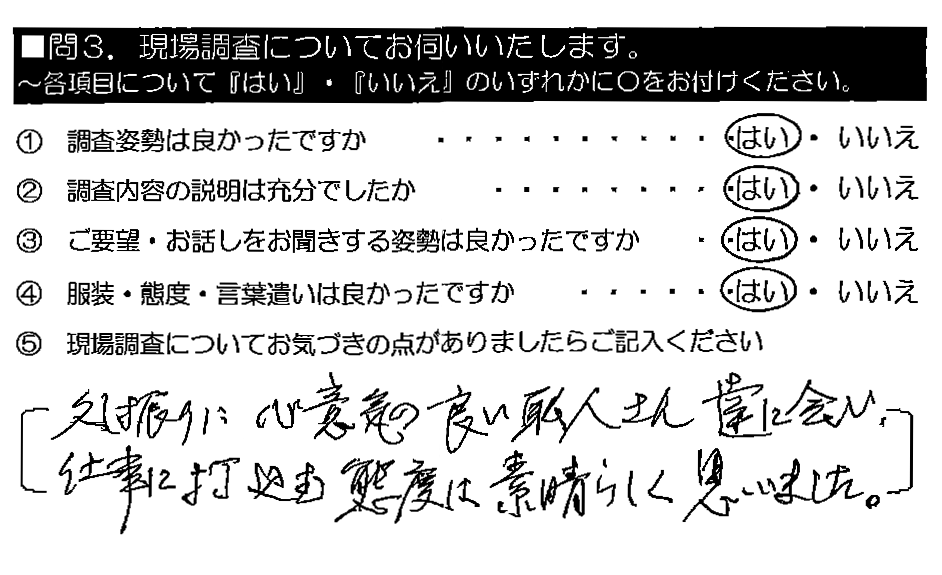 ■問3．現場調査についてお伺いいたします。
～各項目について『はい』・『いいえ』のいずれかに○をお付けください。
① 調査姿勢は良かったですか ・・・・・・・・・・・はい・いいえ
② 調査内容の説明は充分でしたか ・・・・・・・・・はい・いいえ
③ ご要望・お話しをお聞きする姿勢は良かったですか ・・はい・いいえ
④ 服装・態度・言葉遣いは良かったですか ・・・・・・はい・いいえ
⑤ 現場調査についてお気づきの点がありましたらご記入ください
久し振りに 心意気の良い職人さん達に会い、
仕事に打込む態度は素晴らしく思いました。